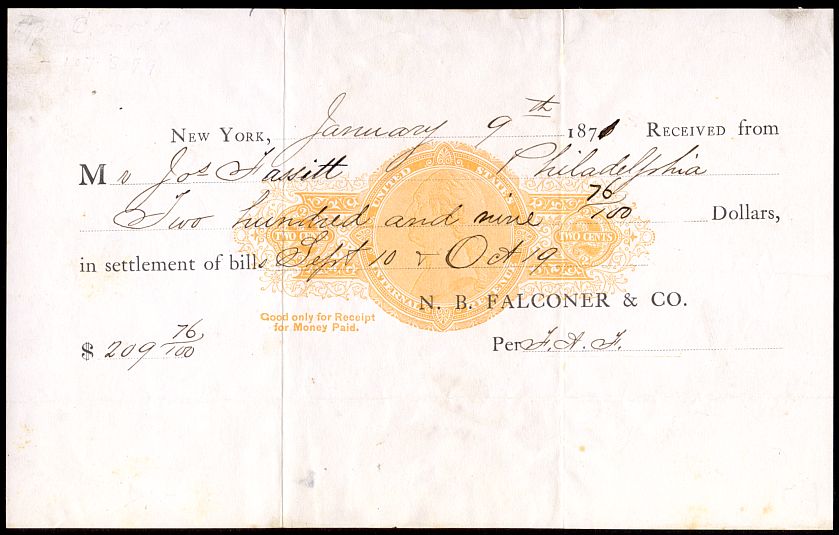 NEW YORK, January 9th 1871 RECEIVED from
Mr Jos Fassitt Philadelphia
Two hundred and nine 76/100 Dollars,
in settlement of bills Sept 10 & Oct 19
UNITED STATES
INTERNAL REVENUE
TWO CENTS
TWO CENTS
N. B. FALCONER & CO.
Good only for Receipt
for Money Paid.
$ 209 76/100
Per F. A. F.